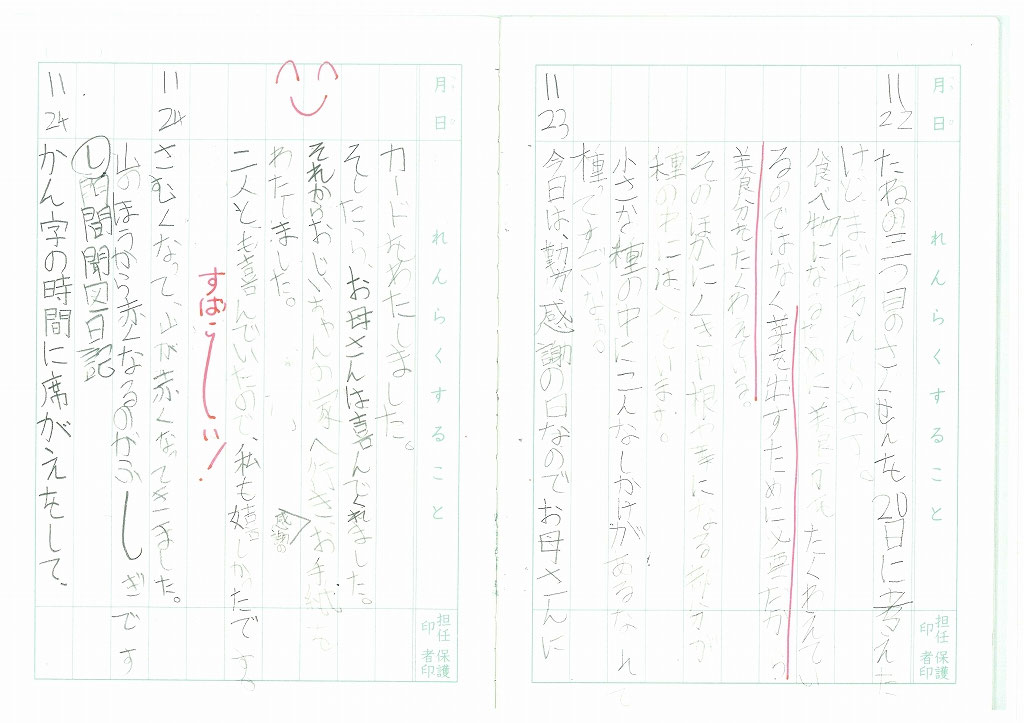 月日 れんらくすること 担任印 保護者印
11 22 たねの三つ目のさくせんも20日に考えた
けど、まだ考えています。
食べ物になるために、養分をたくわえてい
るのではなく芽を出すために必要だから
養分をたくわえている。
そのほかにくきや根や芽になる部分が
種の中には入っています。
小さな種の中にこんなしかけがあるなんて
種ってすごいなぁ。
11 23 今日は、勤労感謝の日なのでお母さんに
月日 れんらくすること 担任印 保護者印
カードをわたしました。
そしたら、お母さんは喜んでくれました。
それからおじいちゃんの家へ行き、お手紙を
感謝の
わたしました。
二人とも喜んでいたので、私も嬉しかったです。
すばらしい!
11 24 さむくなって、山が赤くなってきました。
山のほうから赤くなるのがふしぎです
し 門間聞図日記
11 24 かん字の時間に席がえをして、